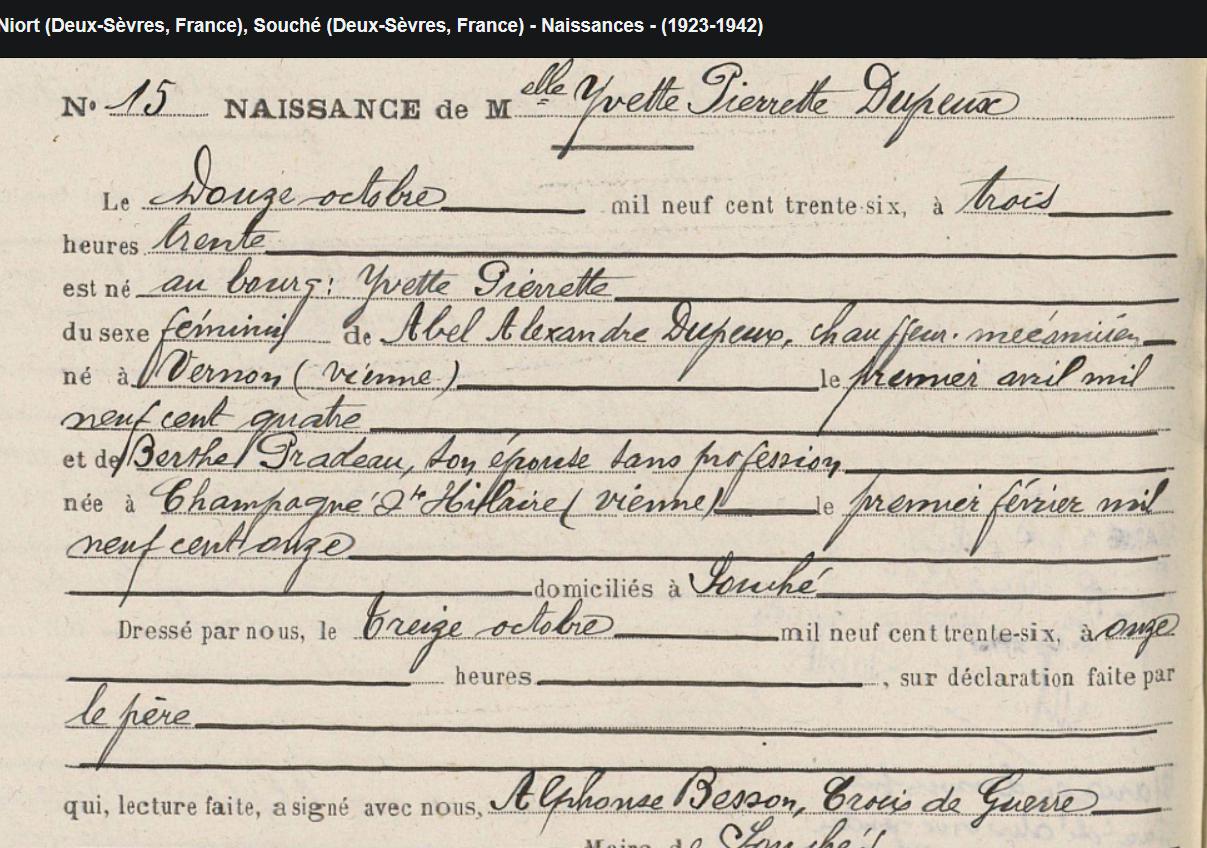 Niort (Deux-Sèvres, France), Souché (Deux-Sèvres, France) - Naissances - (1923-1942)
N° 15 NAISSANCE de Melle Yvette Pierrette Dupeux
Le Douze octobre mil neuf cent trente-six, à trois
heures trente
est né au bourg: Yvette Pierrette
du sexe féminin de Abel Alexandre Dupeux, chauffeur-mécanicien
né à Vernon (vienne) le premier avril mil
neuf cent quatre
et de Berthe Pradeau, son épouse sans profession
née à Champagné St Hillaire (vienne) le premier février mil
neuf cent onze
domiciliés à Souché
Dressé par nous, le treize octobre mil neuf cent trente-six, à onze
heures, sur déclaration faite par
le père
qui, lecture faite, a signé avec nous, Alphonse Besson, Crois de Guerre
Maire de Souché